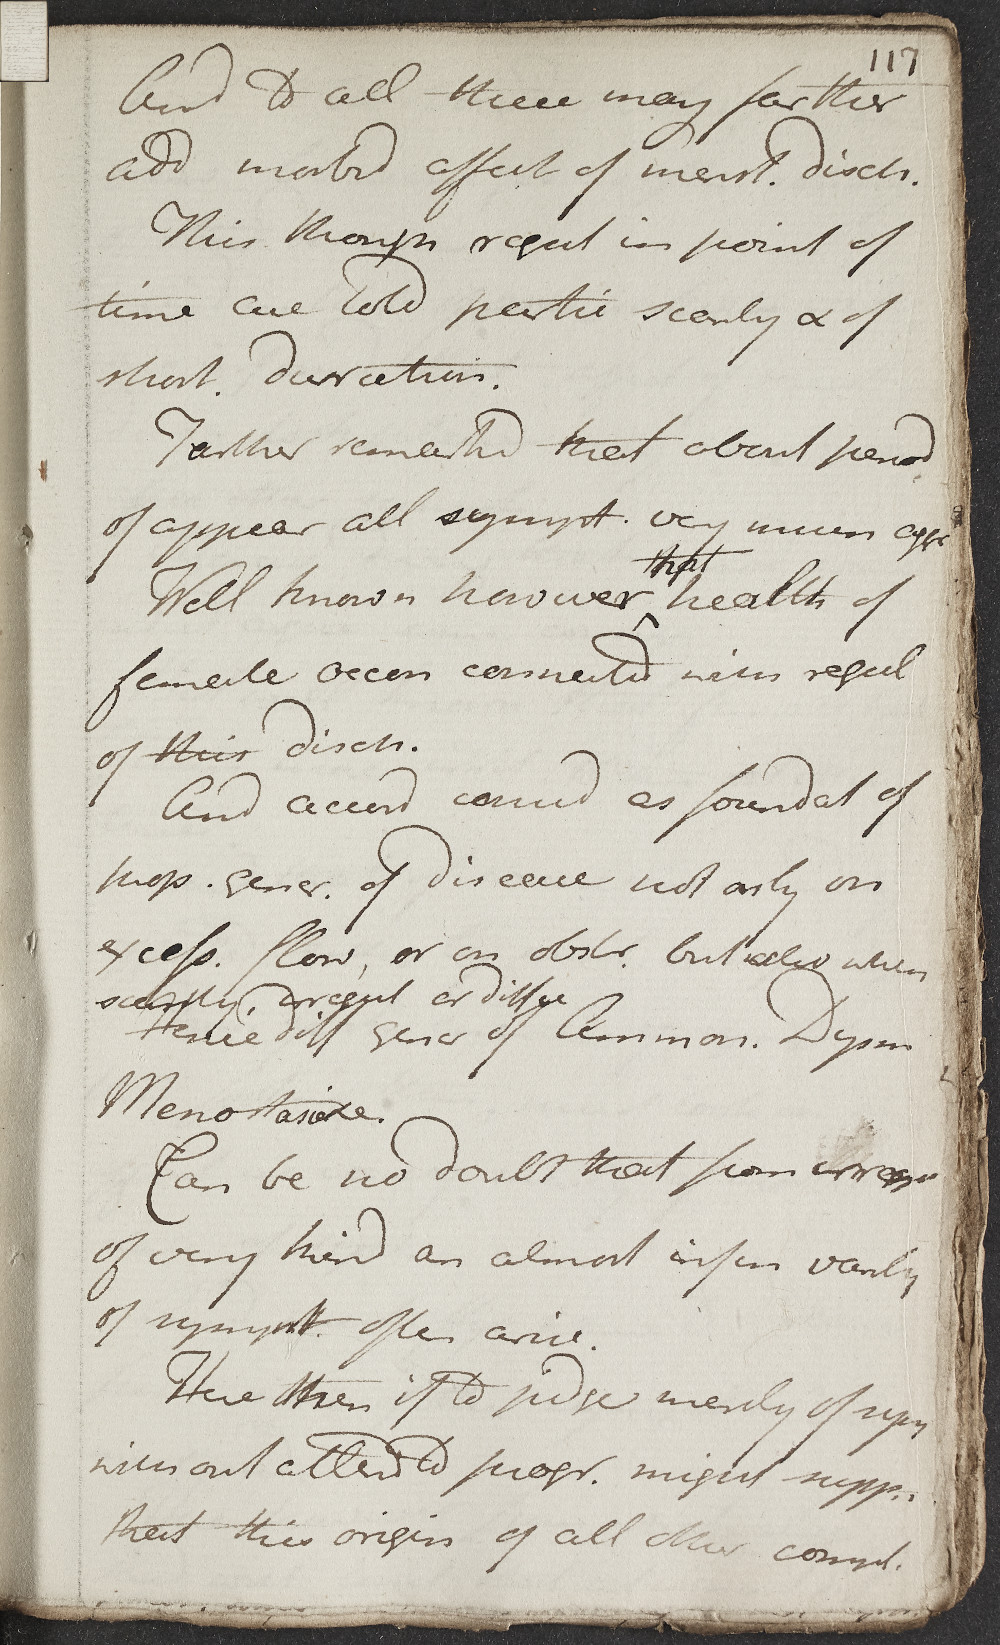 117
And to all these may farther
add morbid affect of menst. disch.
This though regul in point of
time are told partic scanty & of
short. duration.
Farther remarkd that about period
of appear all sympt. very much aggr
Well known however that health of
female oecon connected with regul
of this disch.
And accord consid as foundat of
prop. gener. of disease not only on
excess. flow, or on obstr. but also when
scanty, irregul or diffic
Hence diff gener of Amenorr. Dysm
Menostasiae.
Can be no doubt that from irreg
of every kind an almost infin variety
of sympt. often arise.
Here then if to judge merely of sym
without attend to progr. might supp.
that this origin of all other compl.